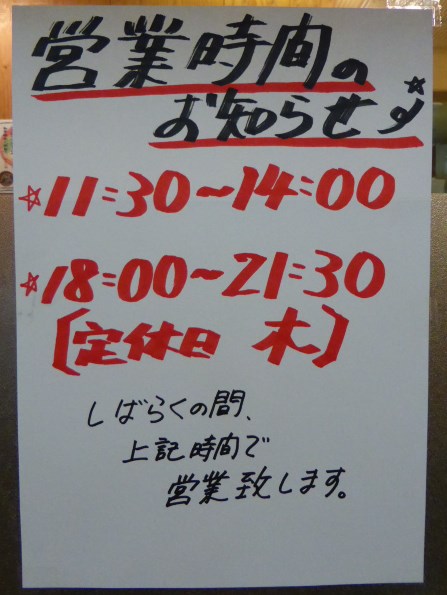 営業時間の
お知らせ
☆11:30～14:00
☆18:00～21:30
[定休日 木]
しばらくの間、
上記時間で
営業致します。